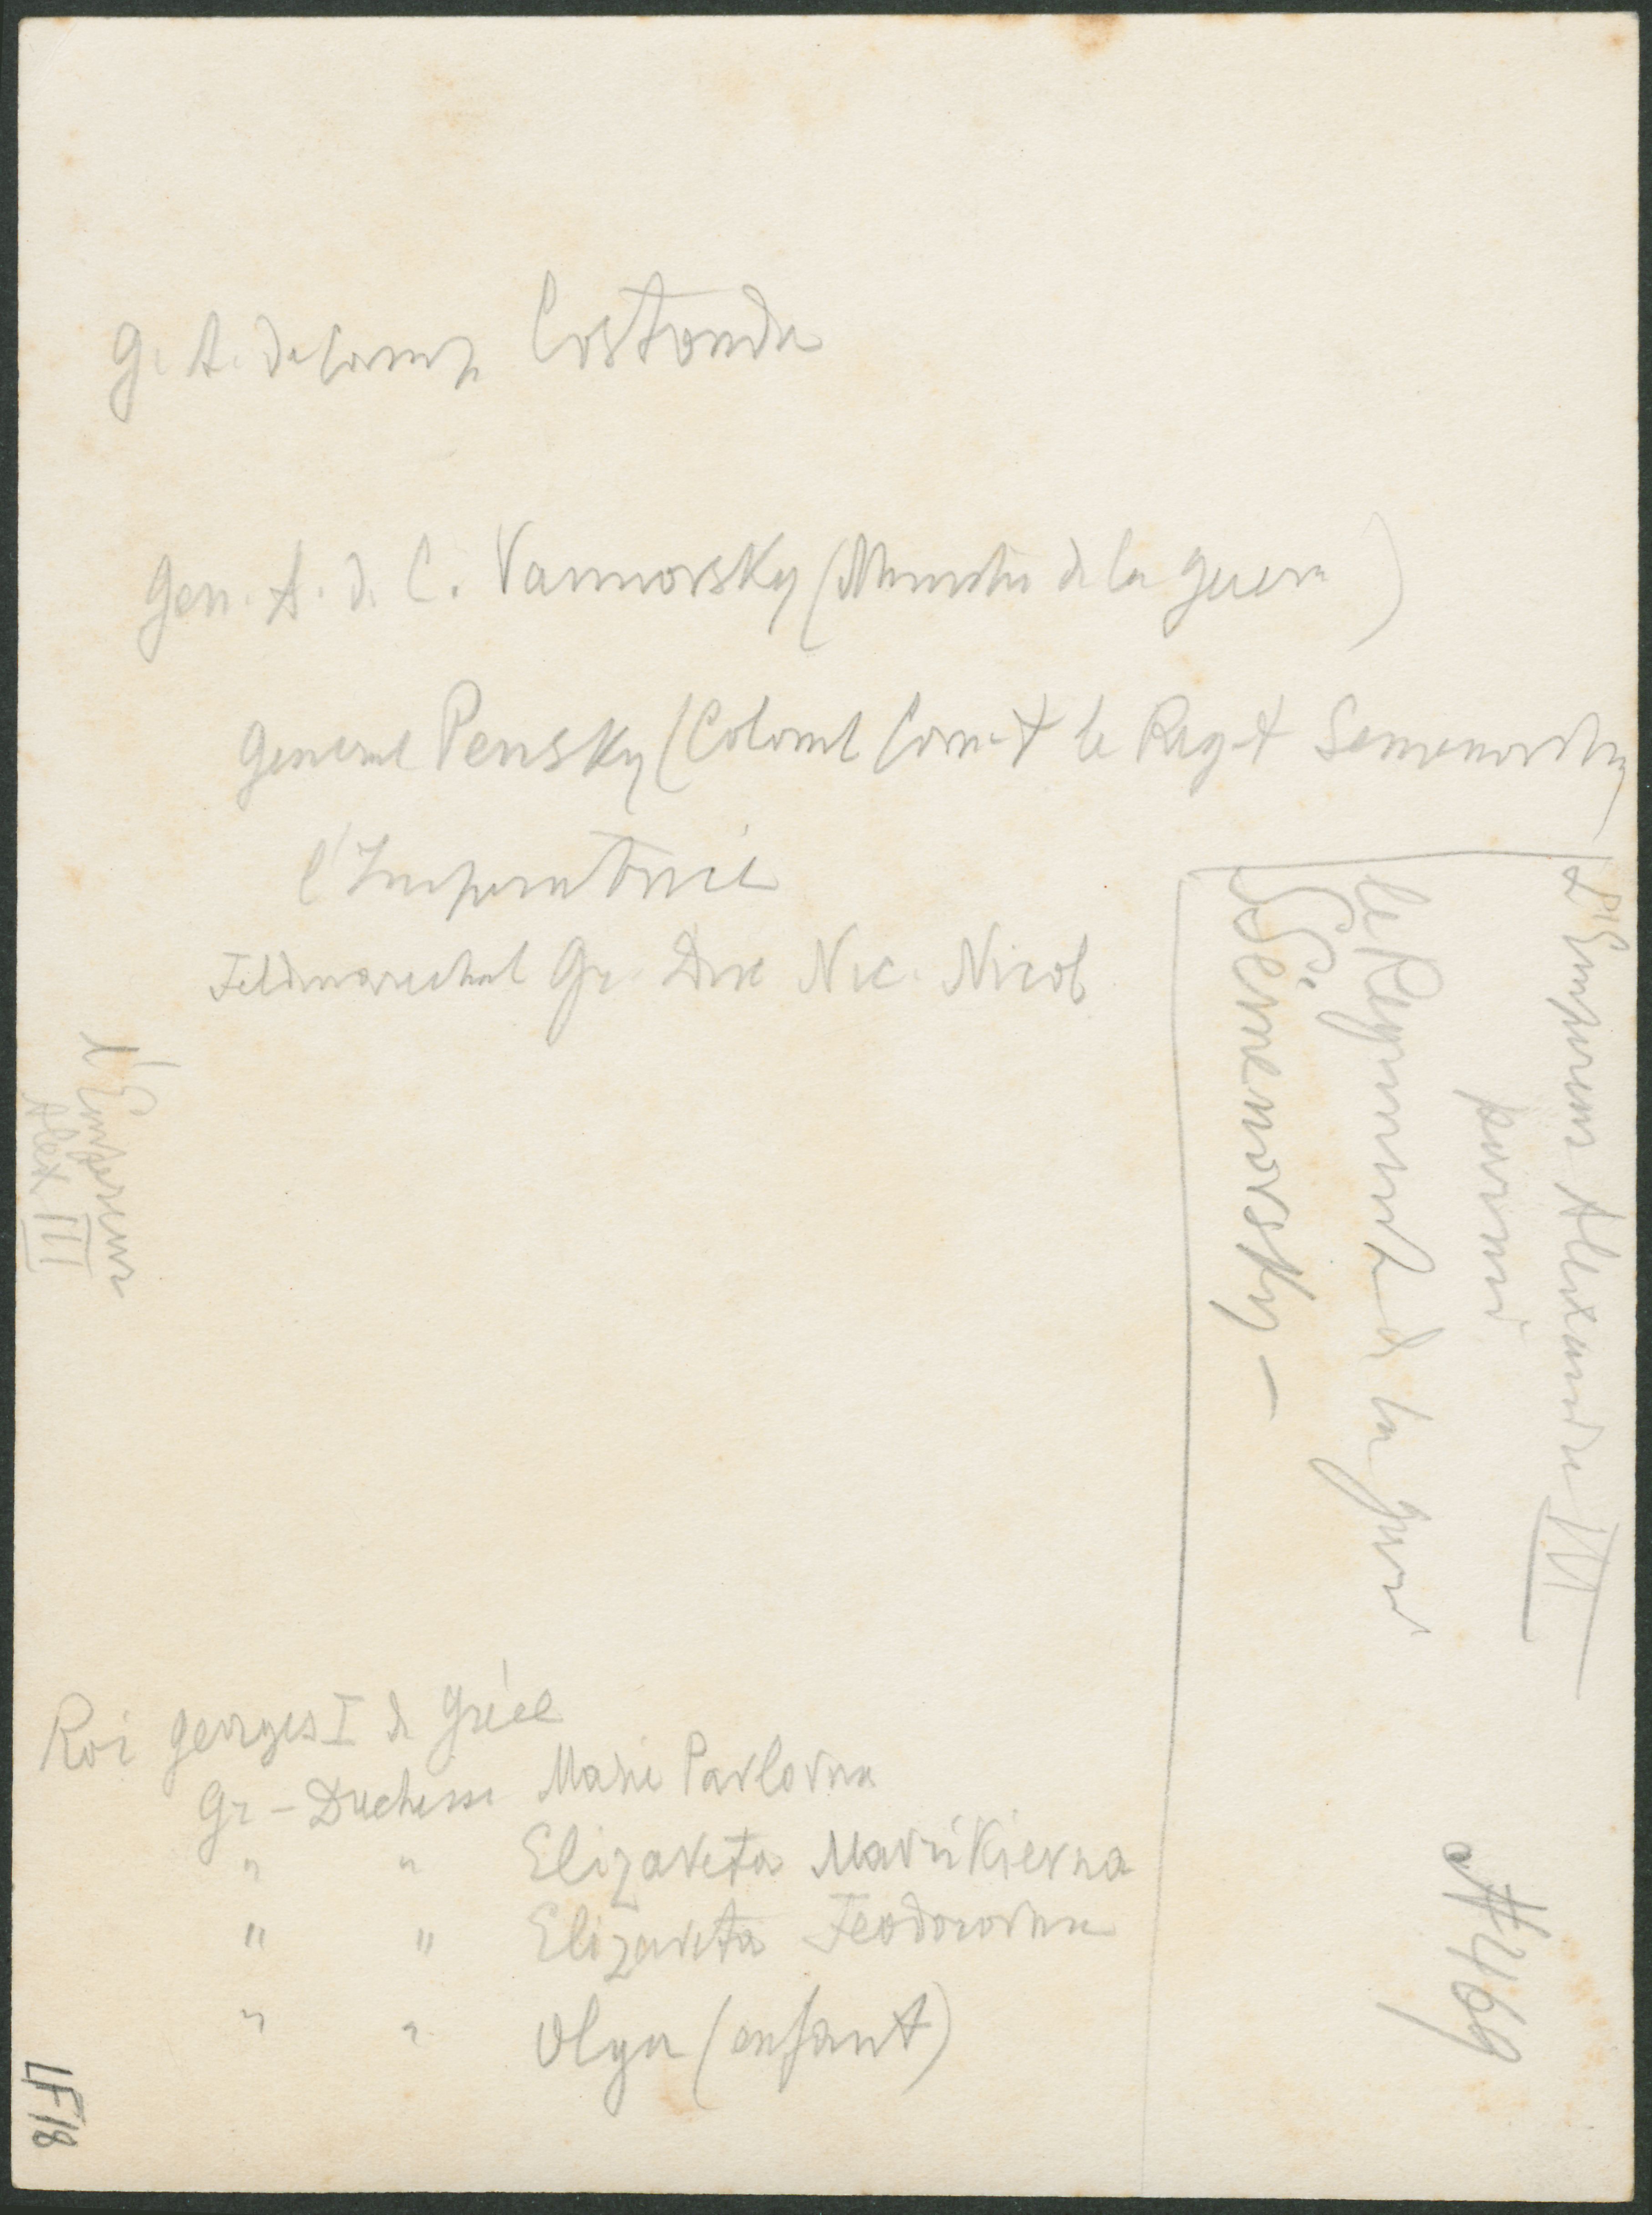 G. A. de Camp Costanda
Gen. A. d. C. Vannovsky (Ministre de la guerre)
General Pensky (Colonel Com-t le Reg-t Semenovsky)
l'Imperatrice
Feldmarechal Gr. Duc Nic. Nicol
l'Empereur
Alex III
L'Empereur Alexandre III
parmi
le Regiment de la Garde
Semenovsky —
Roi Georges I de Grèce
Gr-Duchesse Marie Pavlovna
" " Elizaveta Mavrikievna
" " Elizaveta Feodorovna
" " Olga (enfant)
N 469
LF18